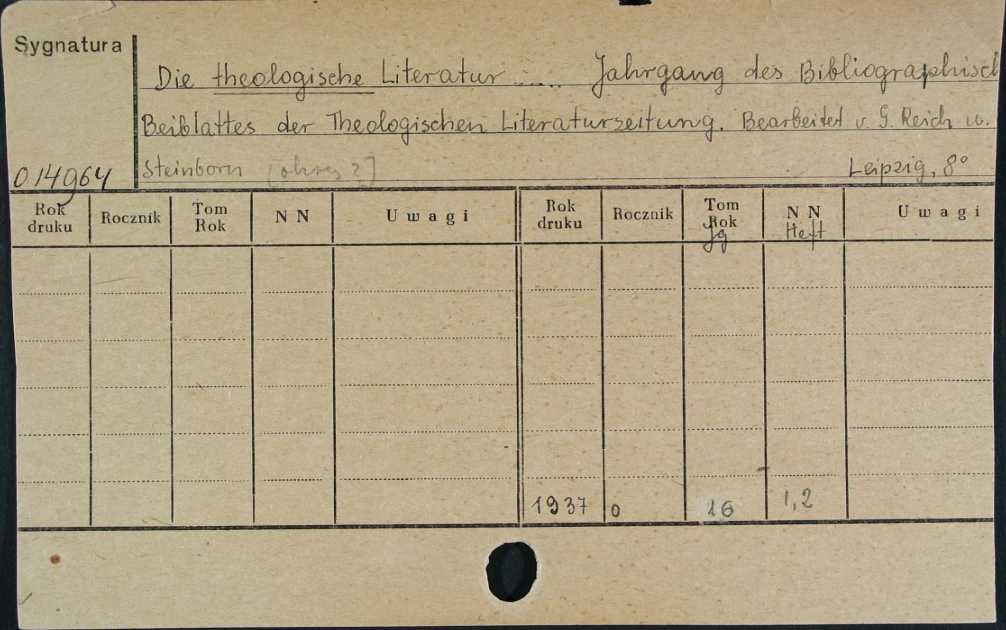 Sygnatura
Die theologische Literatur ..... Jahrgang des Bibliographisch
Beiblattes der Theologischen Literaturzeitung. Bearbeitet v. G. Reich u.
014964 Steinborn Leipzig, 8°
Rok druku Rocznik Tom Rok NN Uwagi Rok druku Rocznik Tom Rok NN Uwagi
Jg Heft
1937 0 16 1,2